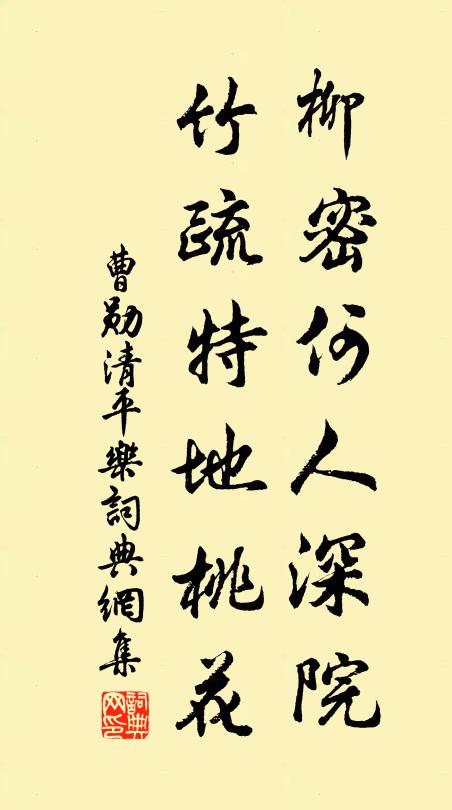 柳密何人深院
竹疏特地桃花
曹勛清平樂詞典網集
詞典网印